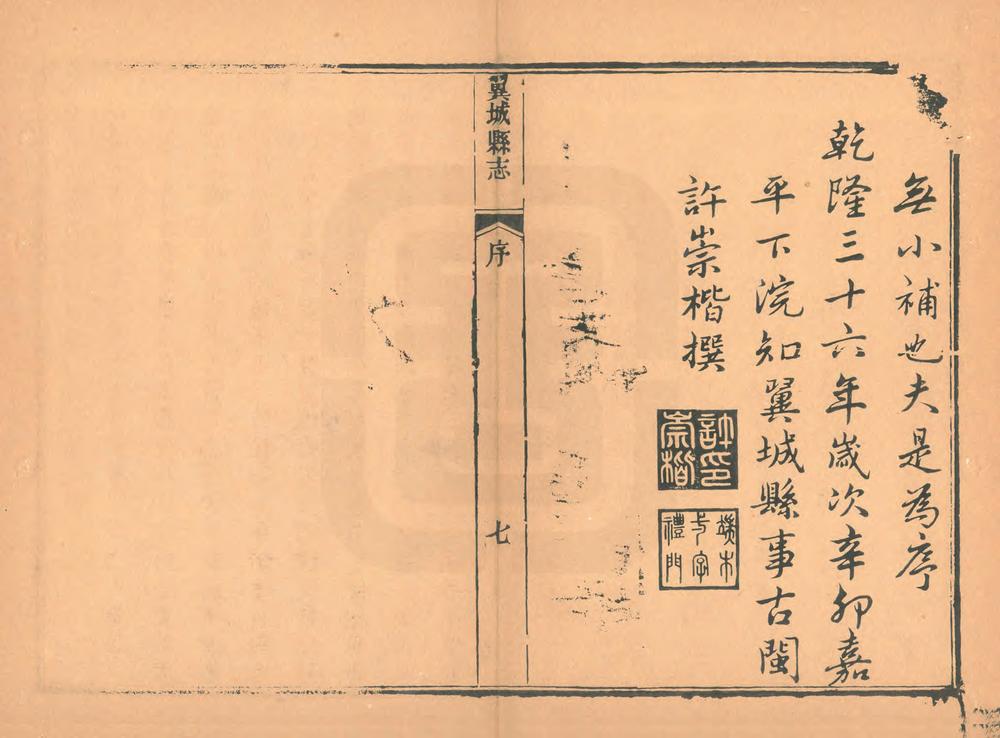 無小補也夫是為序
乾隆三十六年歲次辛卯嘉
平下浣知翼城縣事古閩
許崇楷撰
許崇楷印
禮門
翼城縣志
序
七